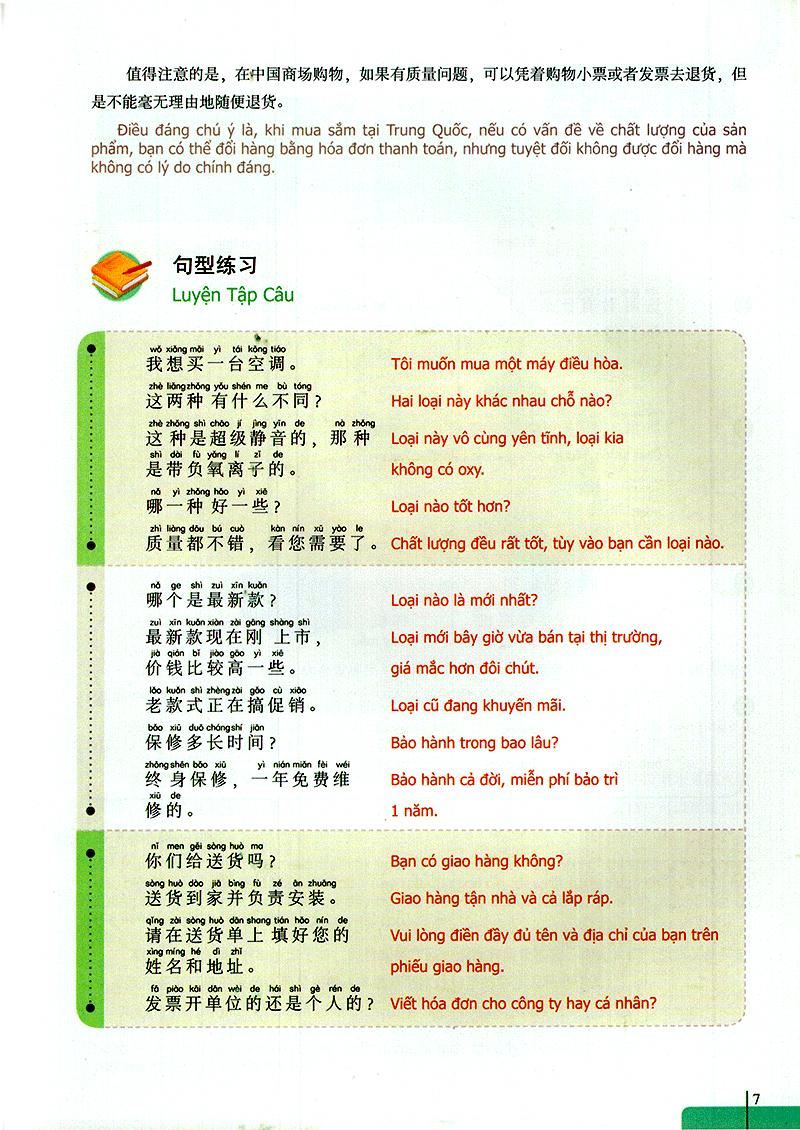 值得注意的是，在中国商场购物，如果有质量问题，可以凭着购物小票或者发票去退货，但
是不能毫无理由地随便退货。
Điều đáng chú ý là, khi mua sắm tại Trung Quốc, nếu có vấn đề về chất lượng của sản
phẩm, bạn có thể đổi hàng bằng hóa đơn thanh toán, nhưng tuyệt đối không được đổi hàng mà
không có lý do chính đáng.
句型练习
Luyện Tập Câu
wǒ xiǎng mǎi yì tái kōng tiáo
我想买一台空调。 Tôi muốn mua một máy điều hòa.
zhè liǎngzhǒng yǒu shén me bù tóng
这两种 有什么不同？ Hai loại này khác nhau chỗ nào?
zhè zhǒng shì chāo jí jìng yīn de nà zhǒng
这种是超级静音的，那种 Loại này vô cùng yên tĩnh, loại kia
shì dài fù yǎng lí zǐ de
是带负氧离子的。 không có oxy.
nǎ yì zhǒng hǎo yì xiē
哪一种 好一些？ Loại nào tốt hơn?
zhì liàng dōu bú cuò kàn nín xū yào le
质量都不错，看您需要了。 Chất lượng đều rất tốt, tùy vào bạn cần loại nào.
nǎ ge shì zuì xīn kuǎn
哪个是最新款？ Loại nào là mới nhất?
zuì xīn kuǎn xiàn zài gāng shàng shì
最新款现在刚 上市， Loại mới bây giờ vừa bán tại thị trường,
jià qián bǐ jiào gāo yì xiē
价钱比较高一些。 giá mắc hơn đôi chút.
lǎo kuǎn shì zhèngzài gǎo cù xiāo
老款式正在搞促销。 Loại cũ đang khuyến mãi.
bǎo xiū duō chángshí jiān
保修多长时间？ Bảo hành trong bao lâu?
zhōngshēn bǎo xiū yì nián miǎn fèi wéi
终身保修，一年免费维 Bảo hành cả đời, miễn phí bảo trì
xiū de
修的。 1 năm.
nǐ men gěi sòng huò ma
你们给送货吗？ Bạn có giao hàng không?
sòng huò dào jiā bìng fù zé ān zhuāng
送货到家并负责安装。 Giao hàng tận nhà và cả lắp ráp.
qǐng zài sòng huò dān shang tián hǎo nín de
请在送货单上 填好您的 Vui lòng điền đầy đủ tên và địa chỉ của bạn trên
xìng míng hé dì zhǐ
姓名和地址。 phiếu giao hàng.
fā piào kāi dān wèi de hái shì gè rén de
发票开单位的还是个人的？ Viết hóa đơn cho công ty hay cá nhân?
7